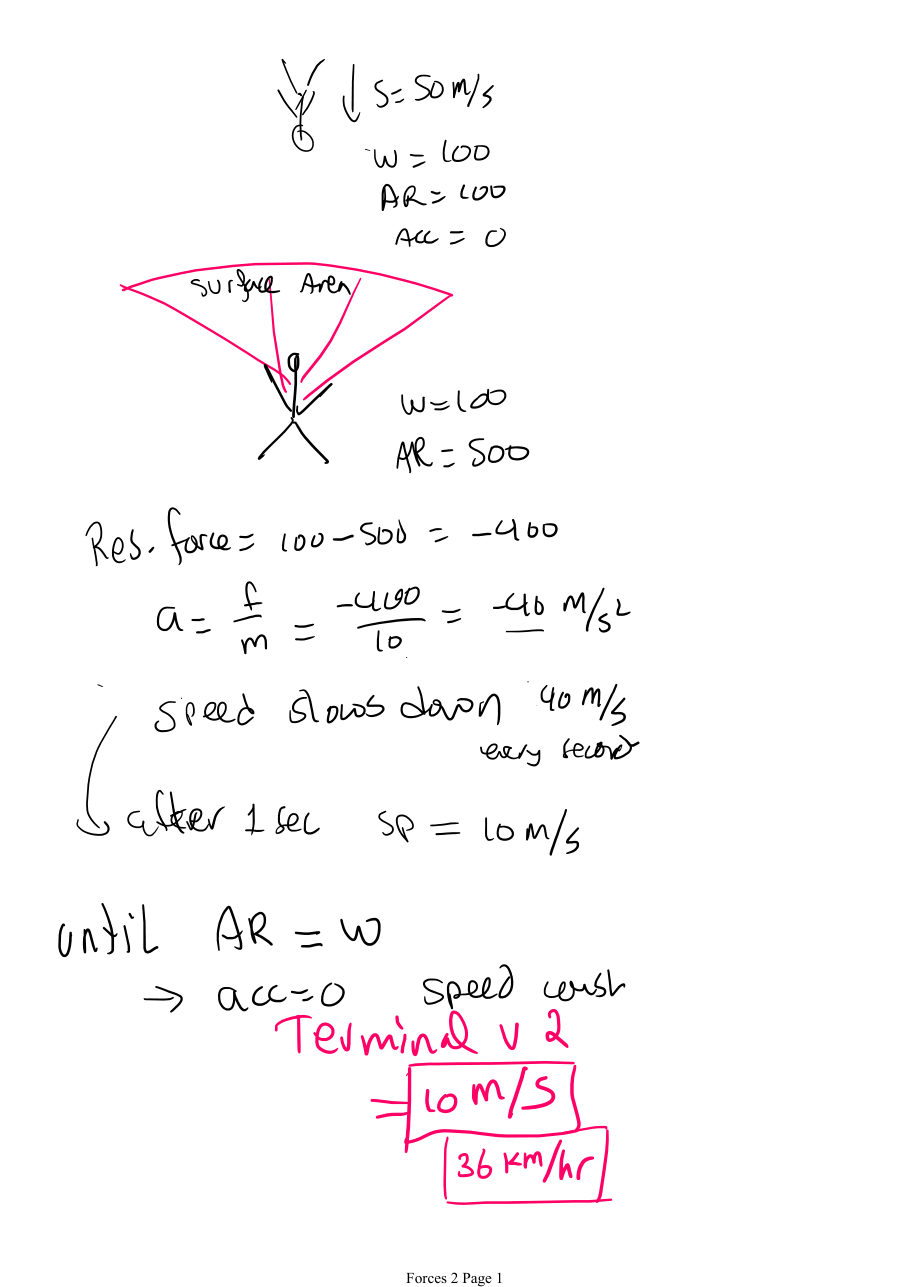 S = 50 m/s
W = 100
AR = 100
Acc = 0
Surface Area
W = 100
AR = 500
Res. force = 100 - 500 = -400
a = f/m = -400/10 = -40 m/s²
speed slows down 40 m/s
every second
after 1 sec sp = 10 m/s
until AR = W
→ acc = 0 speed const
Terminal v 2
= 10 m/s
36 km/hr
Forces 2 Page 1